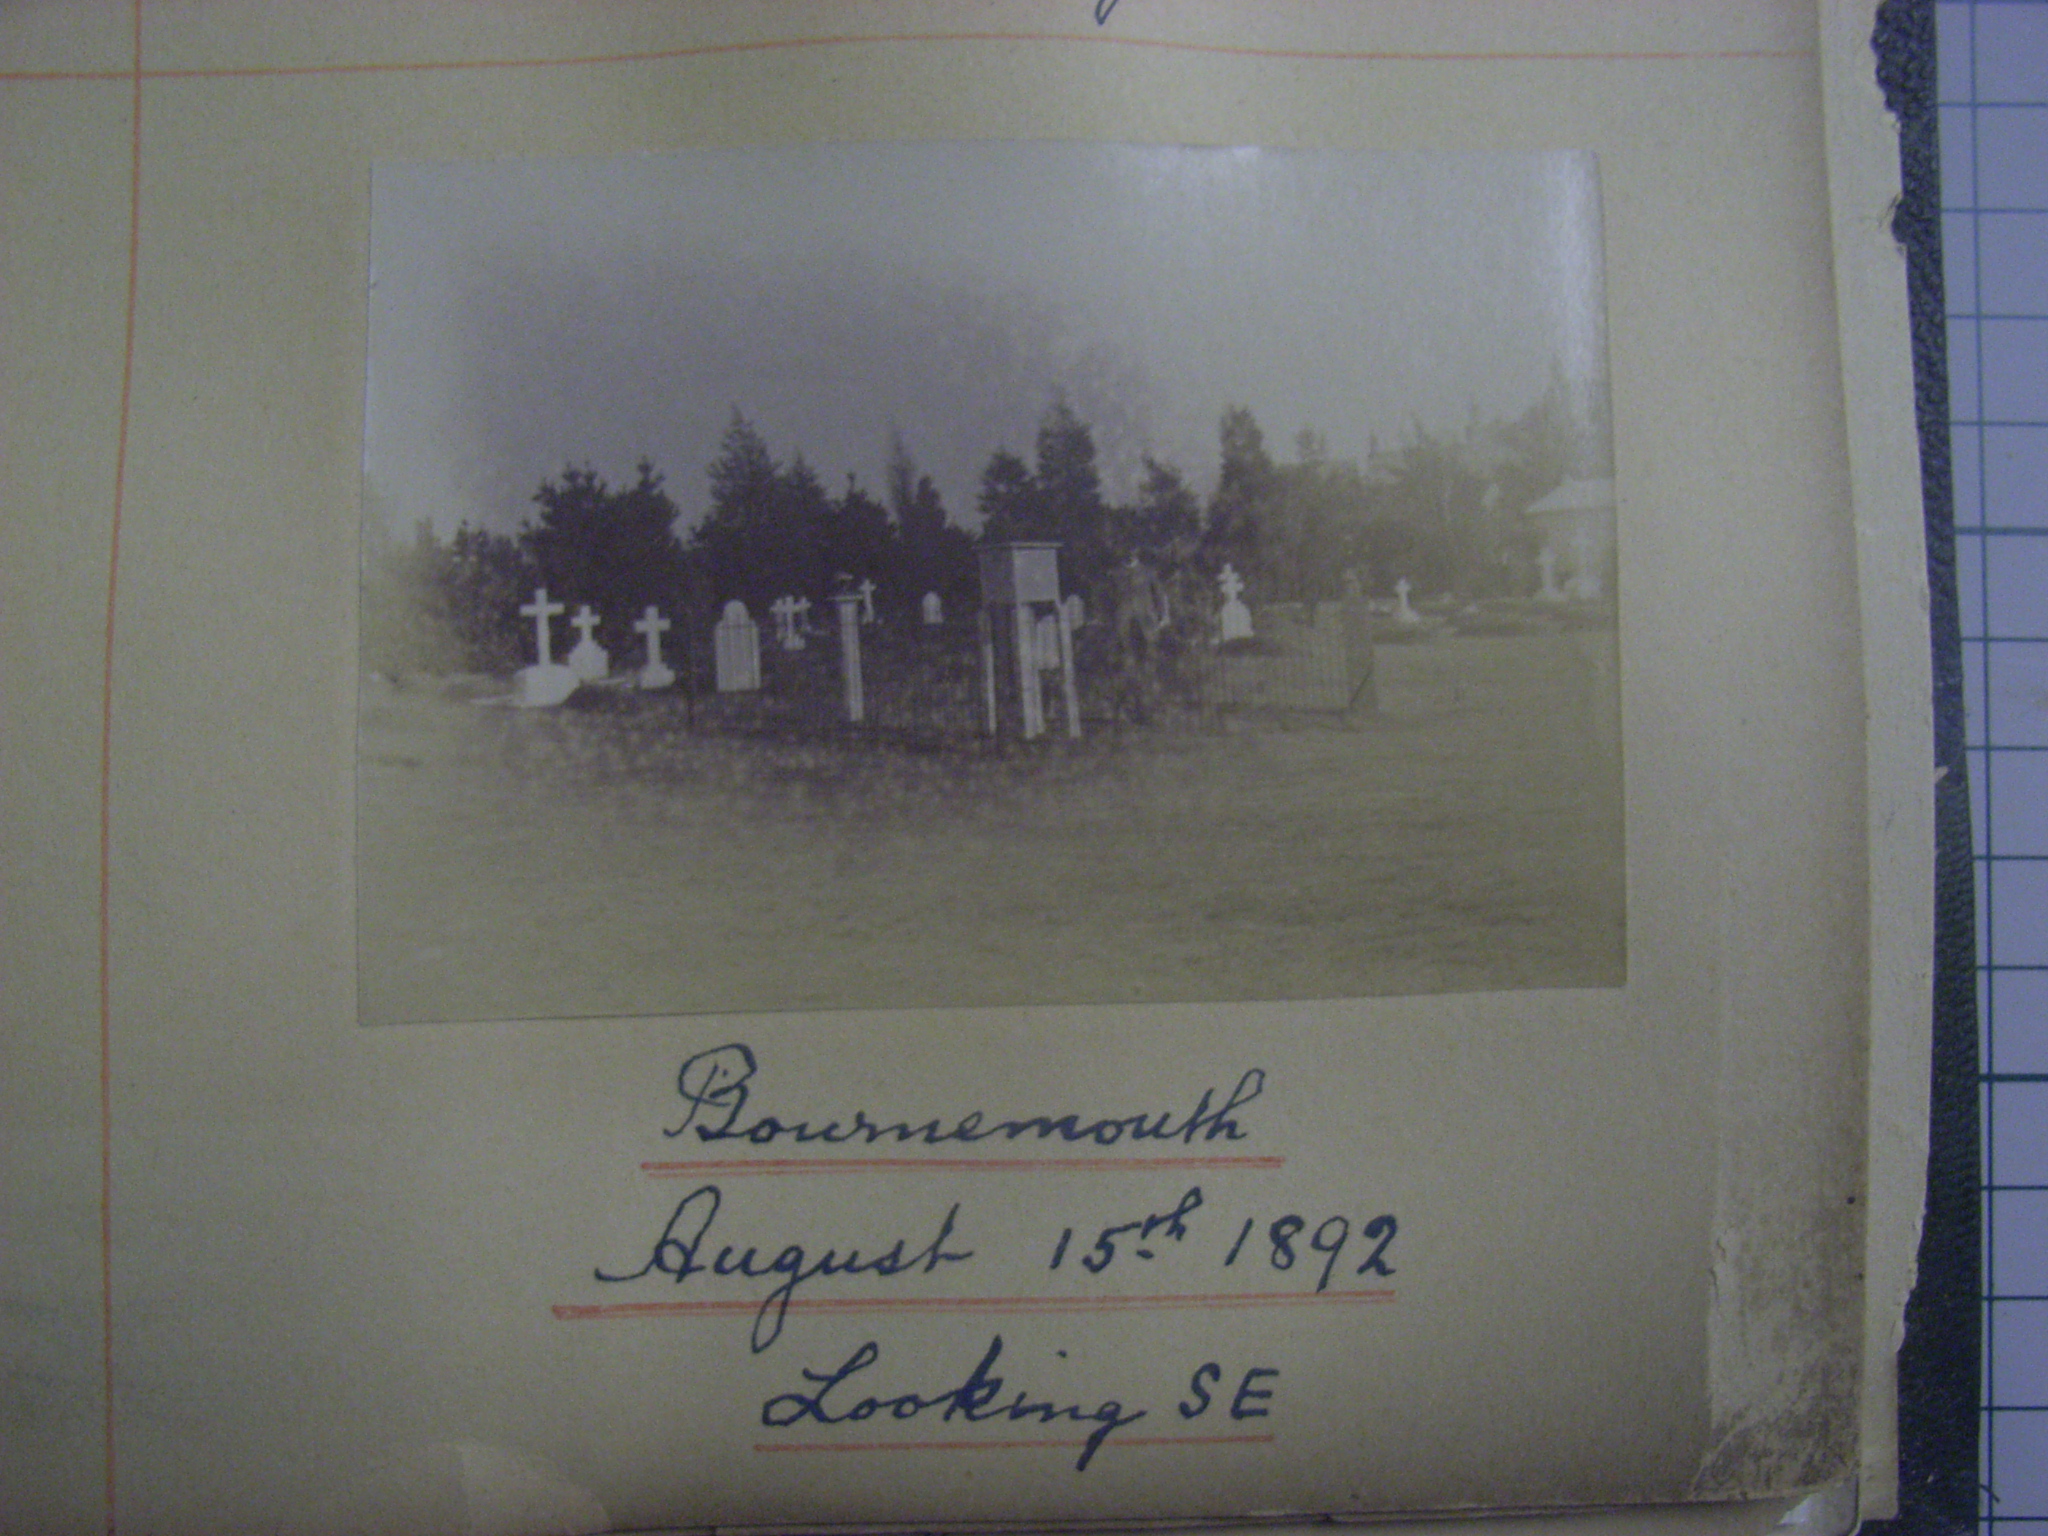 Bournemouth
August 15th 1892
Looking SE